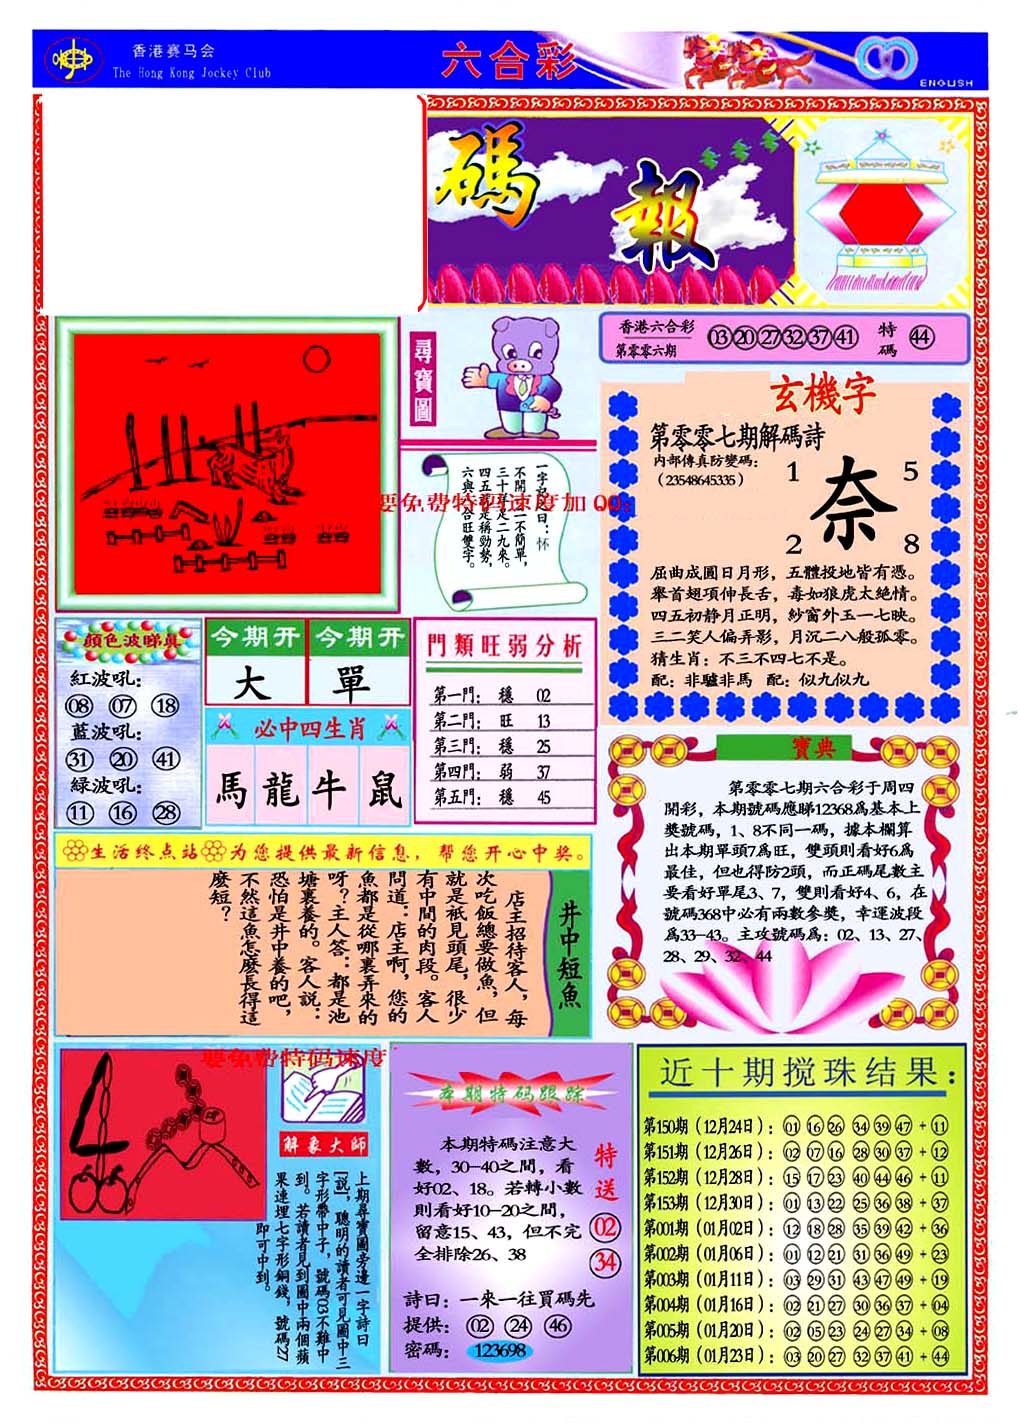 香港赛马会
The Hong Kong Jockey Club
六合彩
ENGLISH
碼報
尋寶圖
香港六合彩
第零零六期
03 20 27 32 37 41
特碼 44
玄機字
第零零七期解碼詩
内部傳真防變碼：
（23548645335）
1 5
奈
2 8
屈曲成圓日月形，五體投地皆有憑。
舉首翅項伸長舌，毒如狼虎太絶情。
四五初静月正明，紗窗外玉一七映。
三二笑人偏弄影，月沉二八般孤零。
猜生肖：不三不四七不是。
配：非驢非馬 配：似九似九
一字記之曰：怀
不開一二不簡單，
三十年足二九來。
四五
是稱勁勢，
六與
合旺雙字。
要免费特码速度加QQ:
顔色波睇真
紅波吼：
08 07 18
藍波吼：
31 20 41
緑波吼：
11 16 28
今期开 今期开
大 單
必中四生肖
馬 龍 牛 鼠
門類旺弱分析
第一門： 穩 02
第二門： 旺 13
第三門： 穩 25
第四門： 弱 37
第五門： 穩 45
寶典
第零零七期六合彩于周四
開彩，本期號碼應睇12368爲基本上
獎號碼，1、8不同一碼，據本欄算
出本期單頭7爲旺，雙頭則看好6爲
最佳，但也得防2頭，而正碼尾數主
要看好單尾3、7，雙則看好4、6，在
號碼368中必有兩數參獎，幸運波段
爲33—43。主攻號碼爲：02、13、27、
28、29、32、44
生活终点站 为您提供最新信息，帮您开心中奖。
井中短魚
店主招待客人，每
次吃飯總要做魚，但
就是祇見頭尾，很少
有中間的肉段。客人
問道：店主啊，您的
魚都是從哪裏弄來的
呀？主人答：都是池
塘裏養的。客人説：
恐怕是井中養的吧，
不然這魚怎麽長得這
麽短？
要免费特码速度
解象大師
上期尋寶圖旁邊一字詩曰
『説』，聰明的讀者可見圖中三
字形帶中子，號碼03不難中
到。若讀者見到圖中兩個蘋
果連埋七字形銅錢，號碼27
即可中到。
本期特码跟踪
本期特碼注意大
數，30—40之間，看
好02、18。若轉小數
則看好10—20之間，
留意15、43，但不完
全排除26、38
特送
02
34
詩曰：一來一往買碼先
提供： 02 24 46
密碼： 123698
近十期搅珠结果：
第150期（12月24日）：01 16 26 34 39 47 + 11
第151期（12月26日）：02 07 16 28 30 37 + 12
第152期（12月28日）：15 17 23 40 44 46 + 11
第153期（12月30日）：01 13 22 25 36 38 + 37
第001期（01月02日）：12 18 28 35 39 42 + 36
第002期（01月06日）：01 12 21 31 36 49 + 23
第003期（01月11日）：03 29 31 43 47 49 + 19
第004期（01月16日）：02 21 27 30 36 37 + 04
第005期（01月20日）：02 05 23 24 27 34 + 08
第006期（01月23日）：03 20 27 32 37 41 + 44